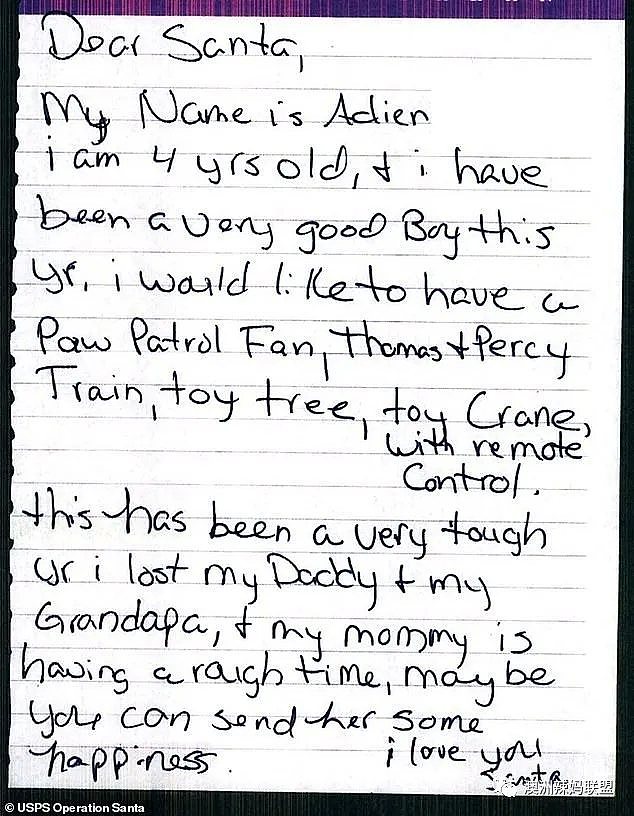 Dear Santa,
My Name is Adien
i am 4 yrs old, + i have
been a very good Boy this
yr. i would like to have a
Paw Patrol Fan, Thomas + Percy
Train, toy tree, toy Crane,
with remote
Control.
this has been a very tough
yr i lost my Daddy + my
Grandapa, + my mommy is
having a rough time, maybe
you can send her some
happiness.
i love you
Santa
© USPS Operation Santa
澳洲辣妈联盟